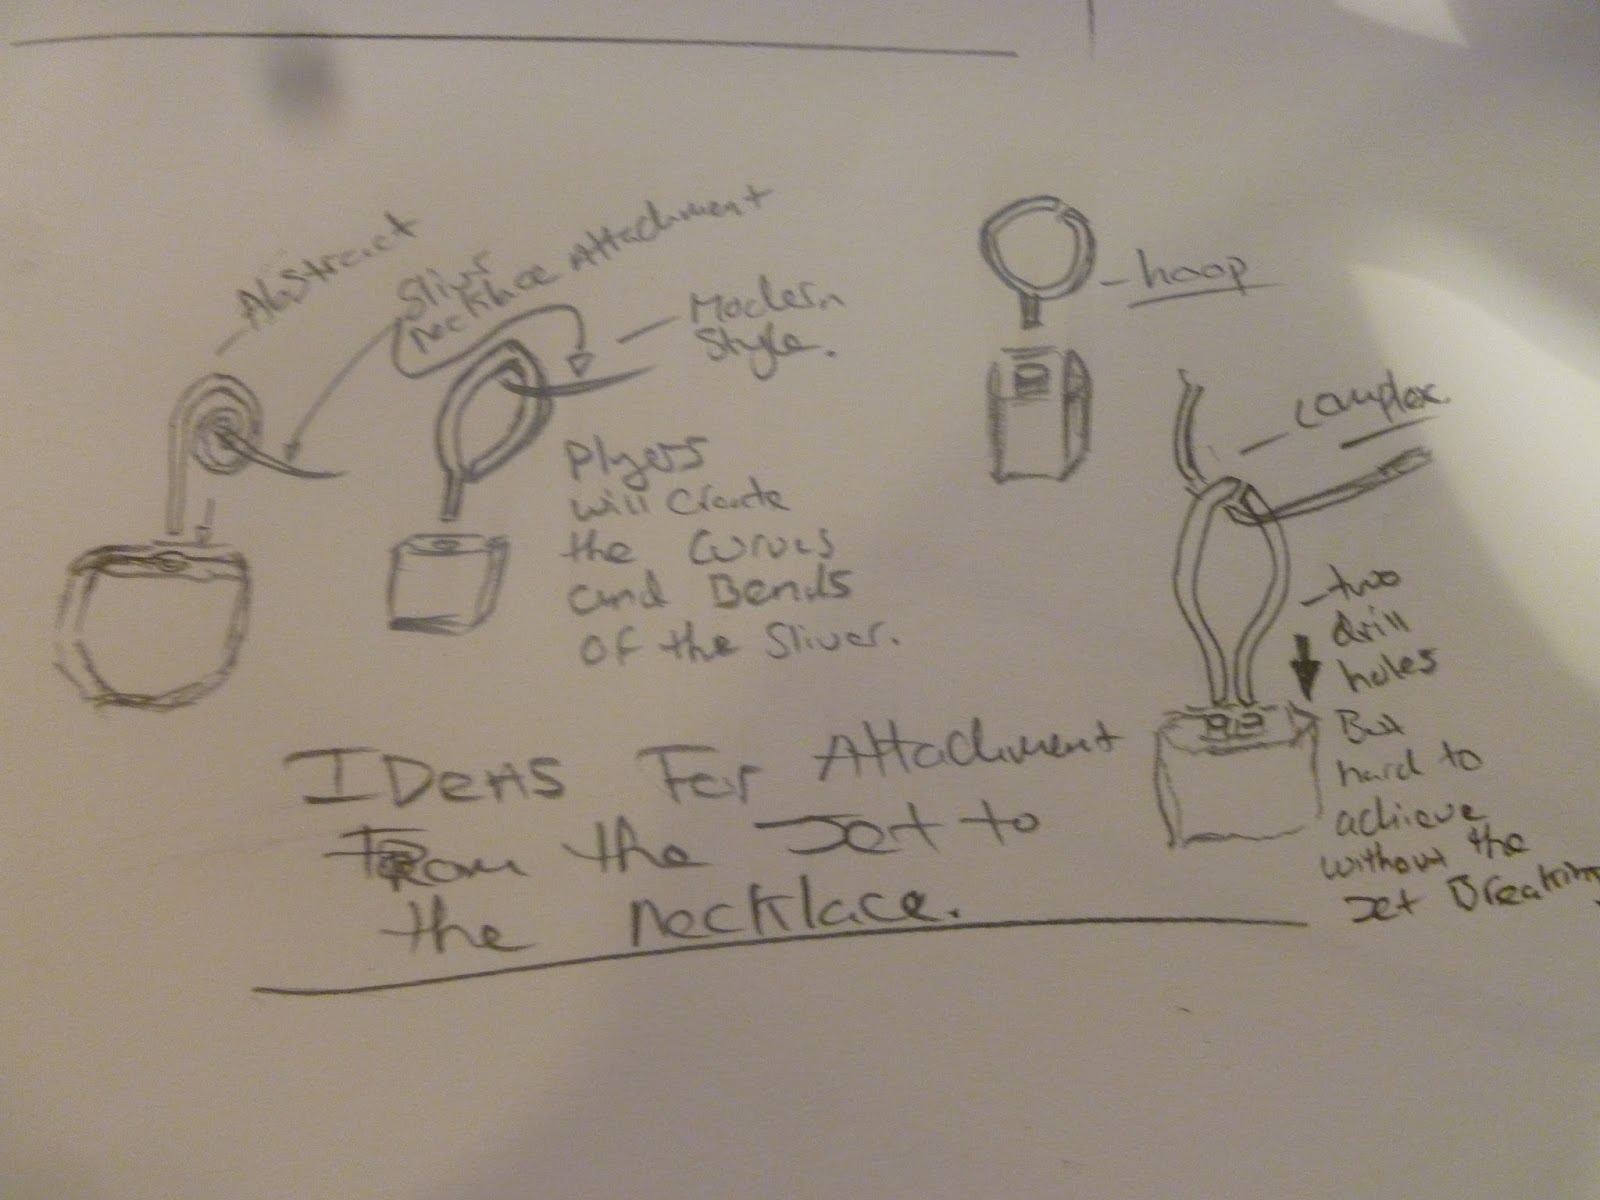 Abstract
Sliver
Necklace Attachment
Modern
Style.
Plyers
will Create
the Curves
and Bends
OF the Sliver.
hoop
complex.
two
drill
holes
But
hard to
achieve
without the
Jet Breaking
IDeAS For Attachment
From the Jet to
the necklace.